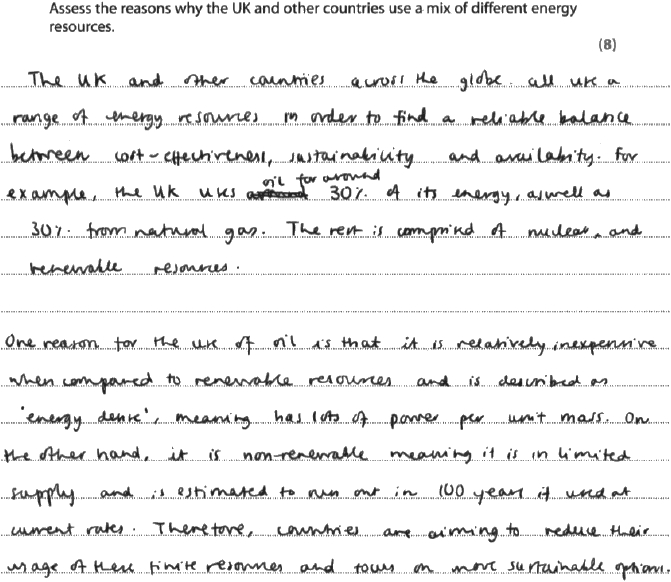 Assess the reasons why the UK and other countries use a mix of different energy
resources.
(8)
The UK and other countries across the globe all use a
range of energy resources in order to find a reliable balance
between cost-effectiveness, sustainability and availabity. For
example, the UK uses oil for around 30% of its energy, aswell as
30% from natural gas. The rest is comprised of nuclear, and
renewable resources.
One reason for the use of oil is that it is relatively inexpensive
when compared to renewable resources and is described as
'energy dense', meaning has lots of power per unit mass. On
the other hand, it is non-renewable meaning it is in limited
supply and is estimated to run out in 100 years if used at
current rates. Therefore, countries are aiming to reduce their
usage of these finite resources and focus on more sustainable options.